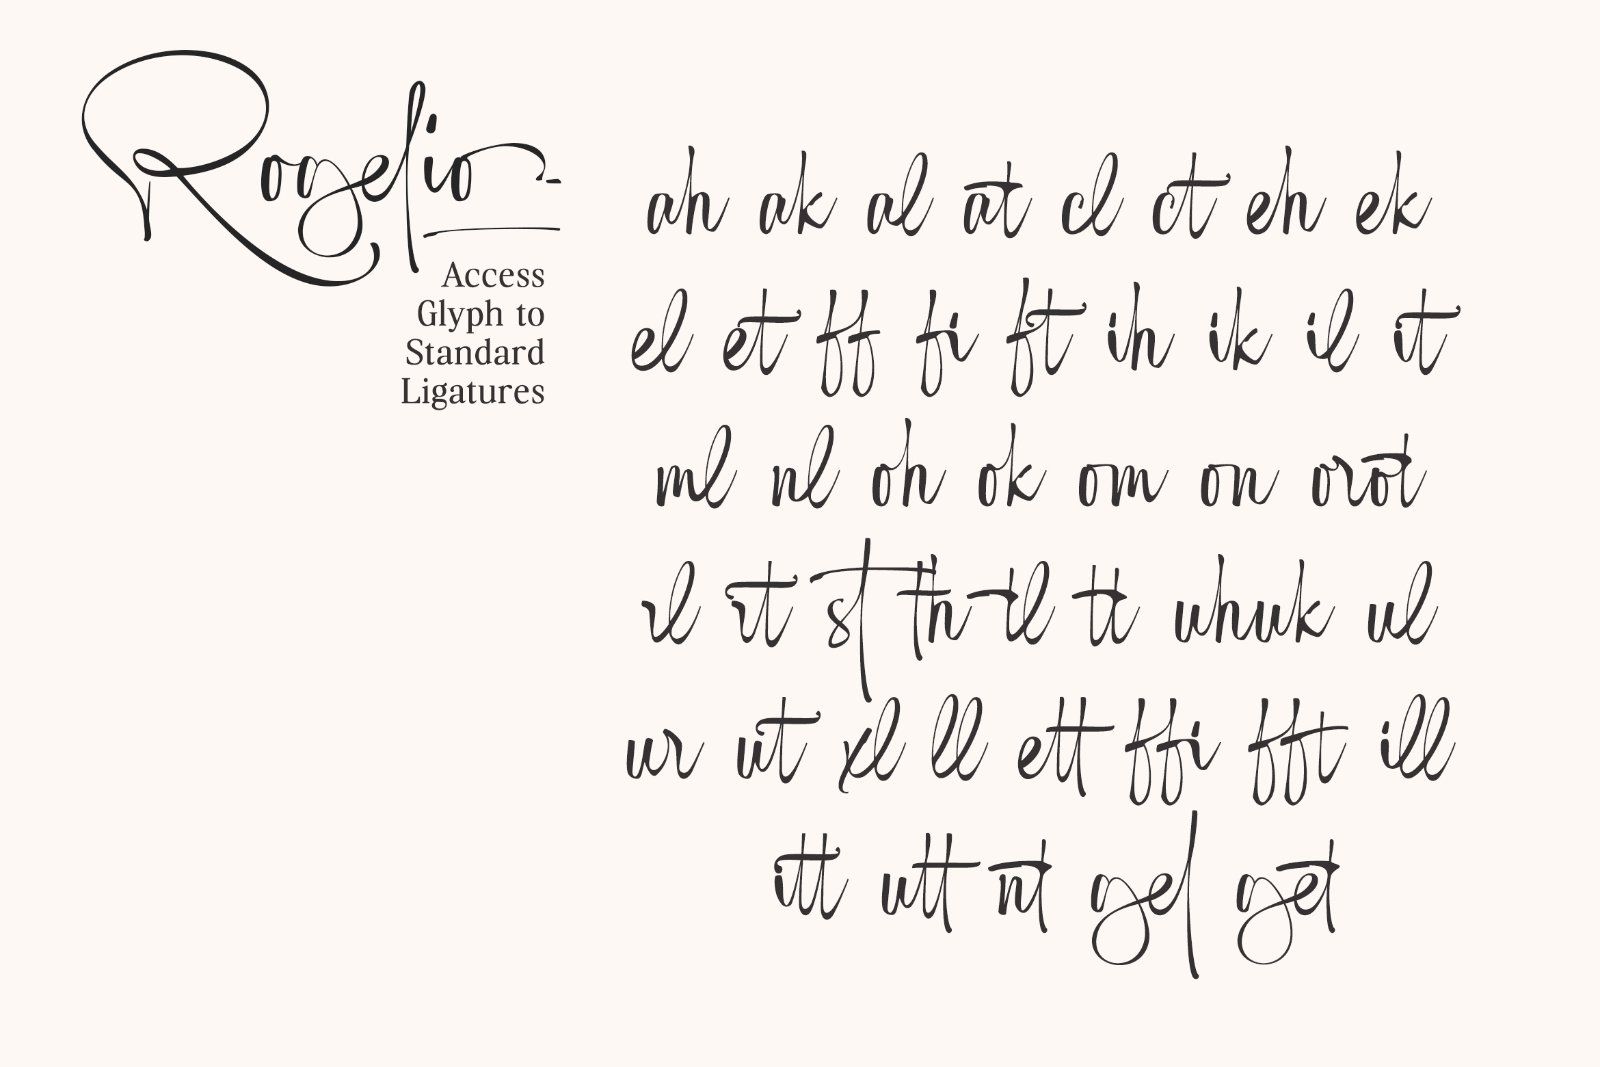 Rogelio
Access
Glyph to
Standard
Ligatures
ah ak al at cl ct eh ek
el et ff fi ft ih ik il it
ml nl oh ok om on or ot
rl rt st th tl tt uh uk ul
ur ut xl ll ett ffi fft ill
itt utt nt gel get